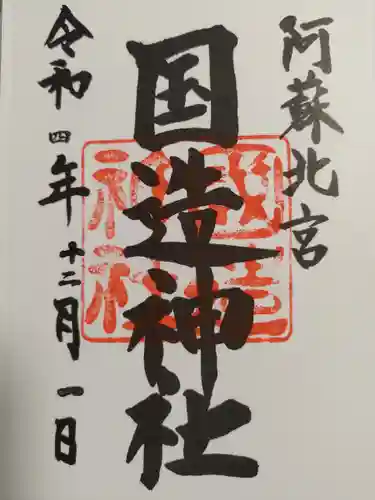 阿蘇北宮
国造神社
令和四年十二月一日
國造
神社